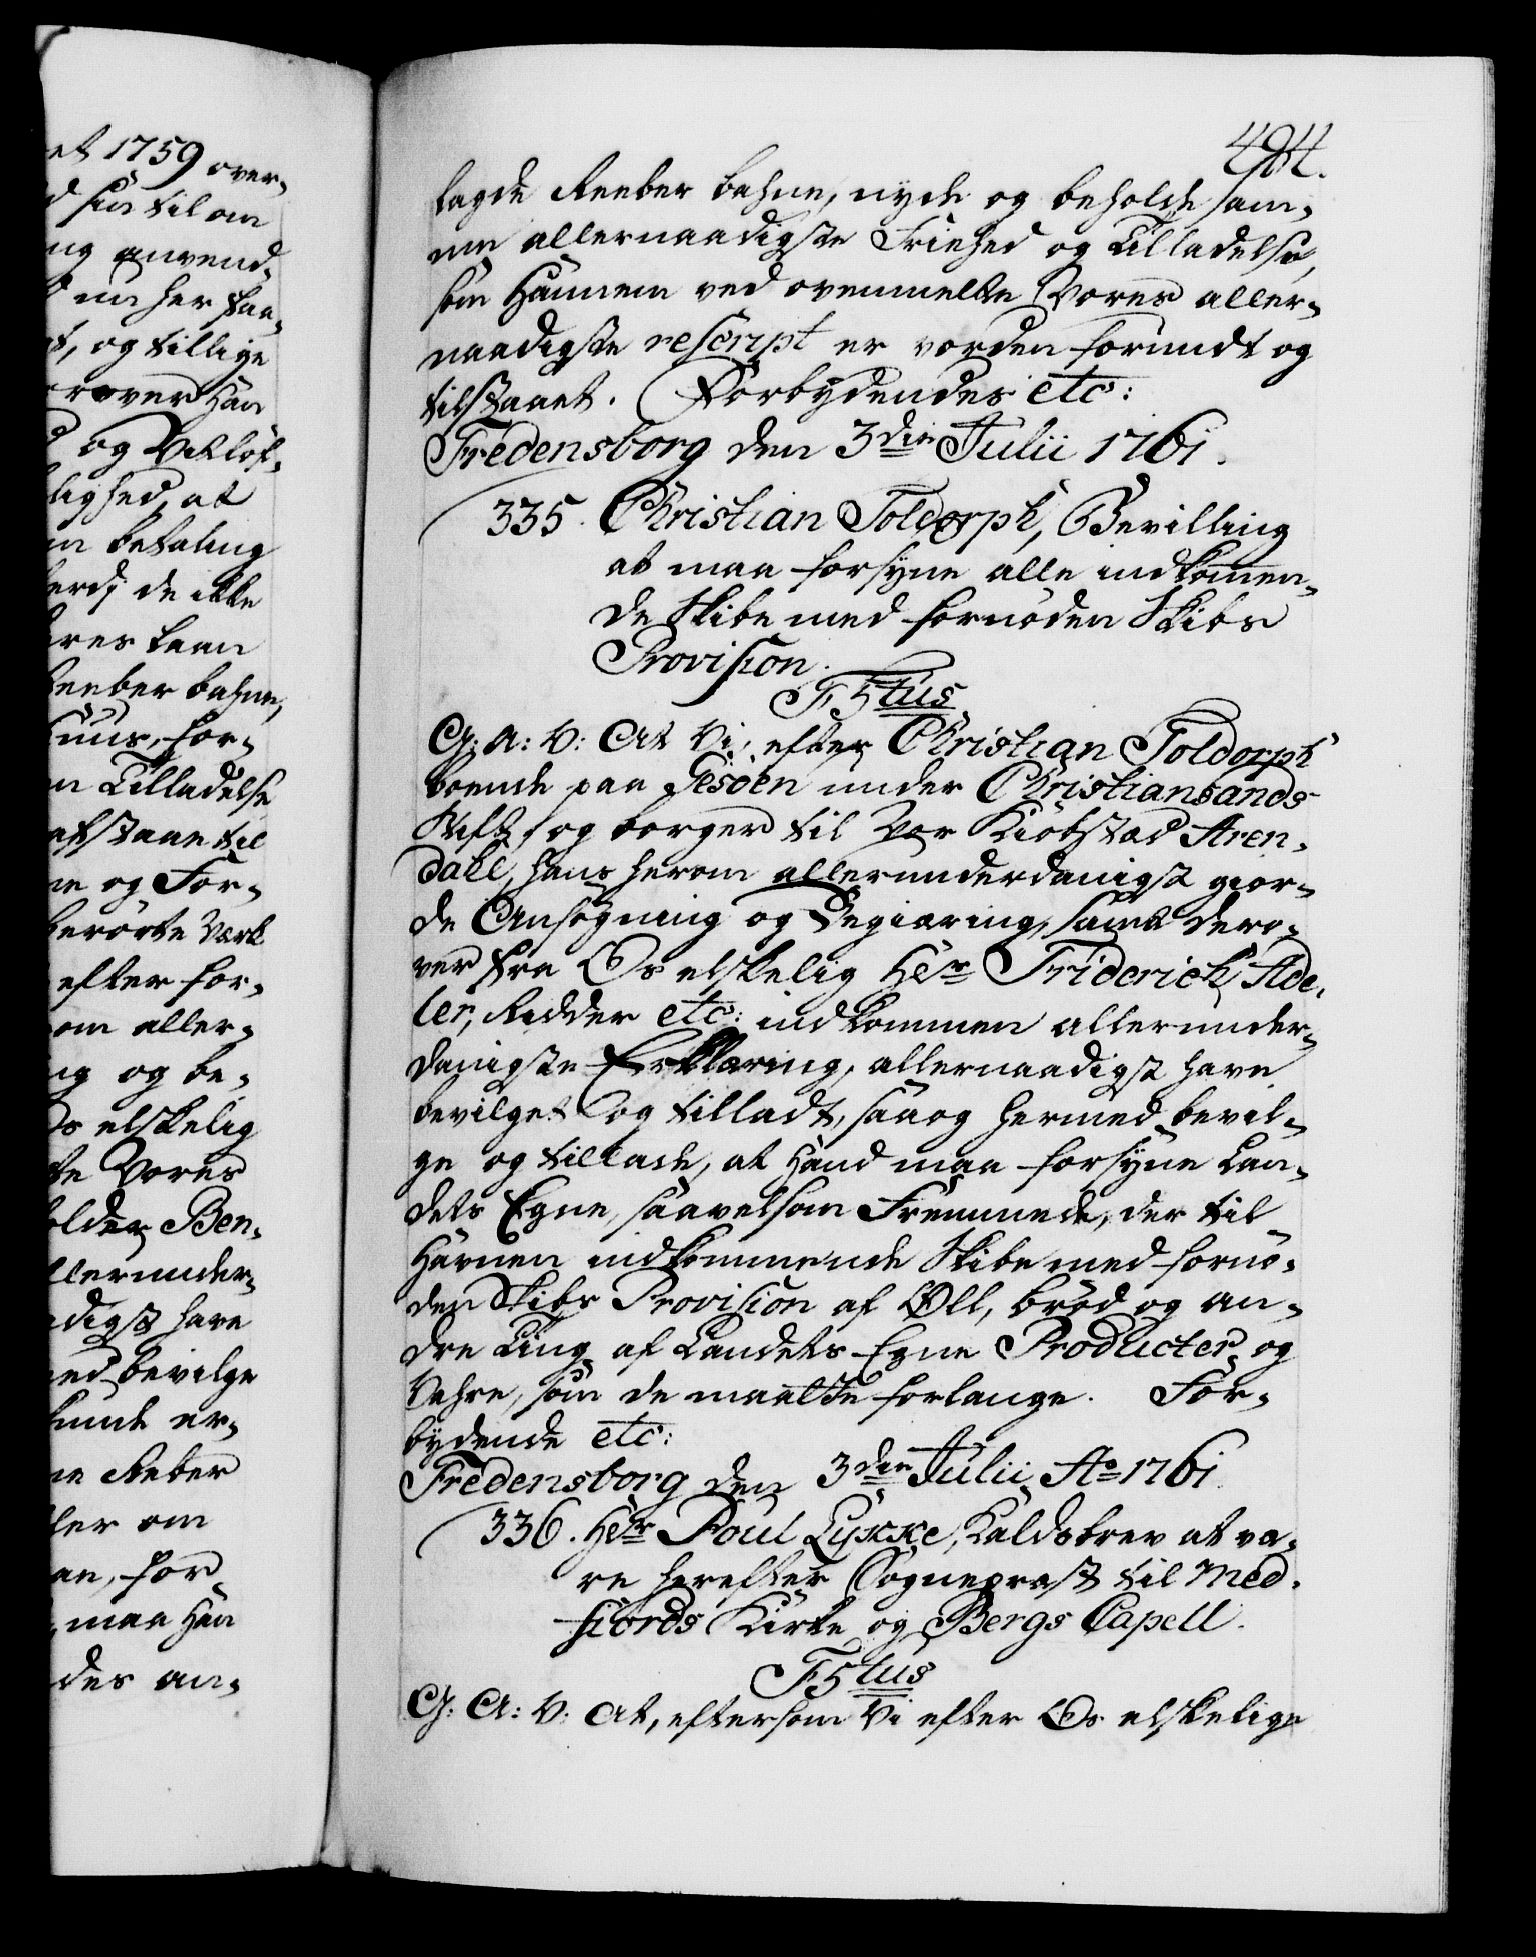 et 1759 over-
d sin til om
ng anvend-
t, og tillige
rover Han
og Vitløf-
lighed, at
n betaling
erdj de ikke
res kaan
Reeber bahne,
huus, for-
n Tilladelse
afstaae til
ne og For-
berørte Værk
efter for-
om aller-
ng og be-
Os elskelig
te Vores
older Ben-
llerunder-
digst have
ed bevilge
kunde er-
ne Reber
ler om
an, for
maa Han
des an-
484.
lagde Reeber bahne, nyde og beholde sam-
me allernaadigste Friehed og Tilladelse,
som Hannem ved ovenmelte Vores aller-
naadigste rescript er vorden forundt og
tilstaaet. Forbydendes etc:
Fredensborg den 3die Julii 1761.
335. Christian Toldorph, Bevilling
at maa forsyne alle indkommen-
de Skibe med fornøden Skibs
Provision.
F5tus
G: A: V: At Vi, efter Christian Toldorph
boende paa Gesøen under Christiansands
Stift, og borger til Vor Kiøbstad Aren-
dahl, hans herom allerunderdanigst gior-
de Ansøgning og Begiæring, samt dero-
ver fra Os elskelig Hr Friderich Ade-
ler, Ridder etc: indkommen allerunder-
danigste Erklæring, allernaadigst have
bevilget og tilladt, saa og hermed bevil-
ge og tillade, at Hand maa forsyne Lan-
dets Egne, saavelsom Fremmede, der til
Havnen indkommende Skibe med fornø-
den Skibs Provision af Øll, brød og an-
dre Ting af Landets Egne Producter og
Vahre, som de maatte forlange. For-
bydende etc:
Fredensborg den 3die Julii Ao 1761
336. Hr Poul Lykke, Kaldsbrev at væ-
re herefter Sognepræst til Med-
fiords Kirke og Bergs Capell.
F5tus
G: A: V: At, eftersom Vi efter Os elskelige